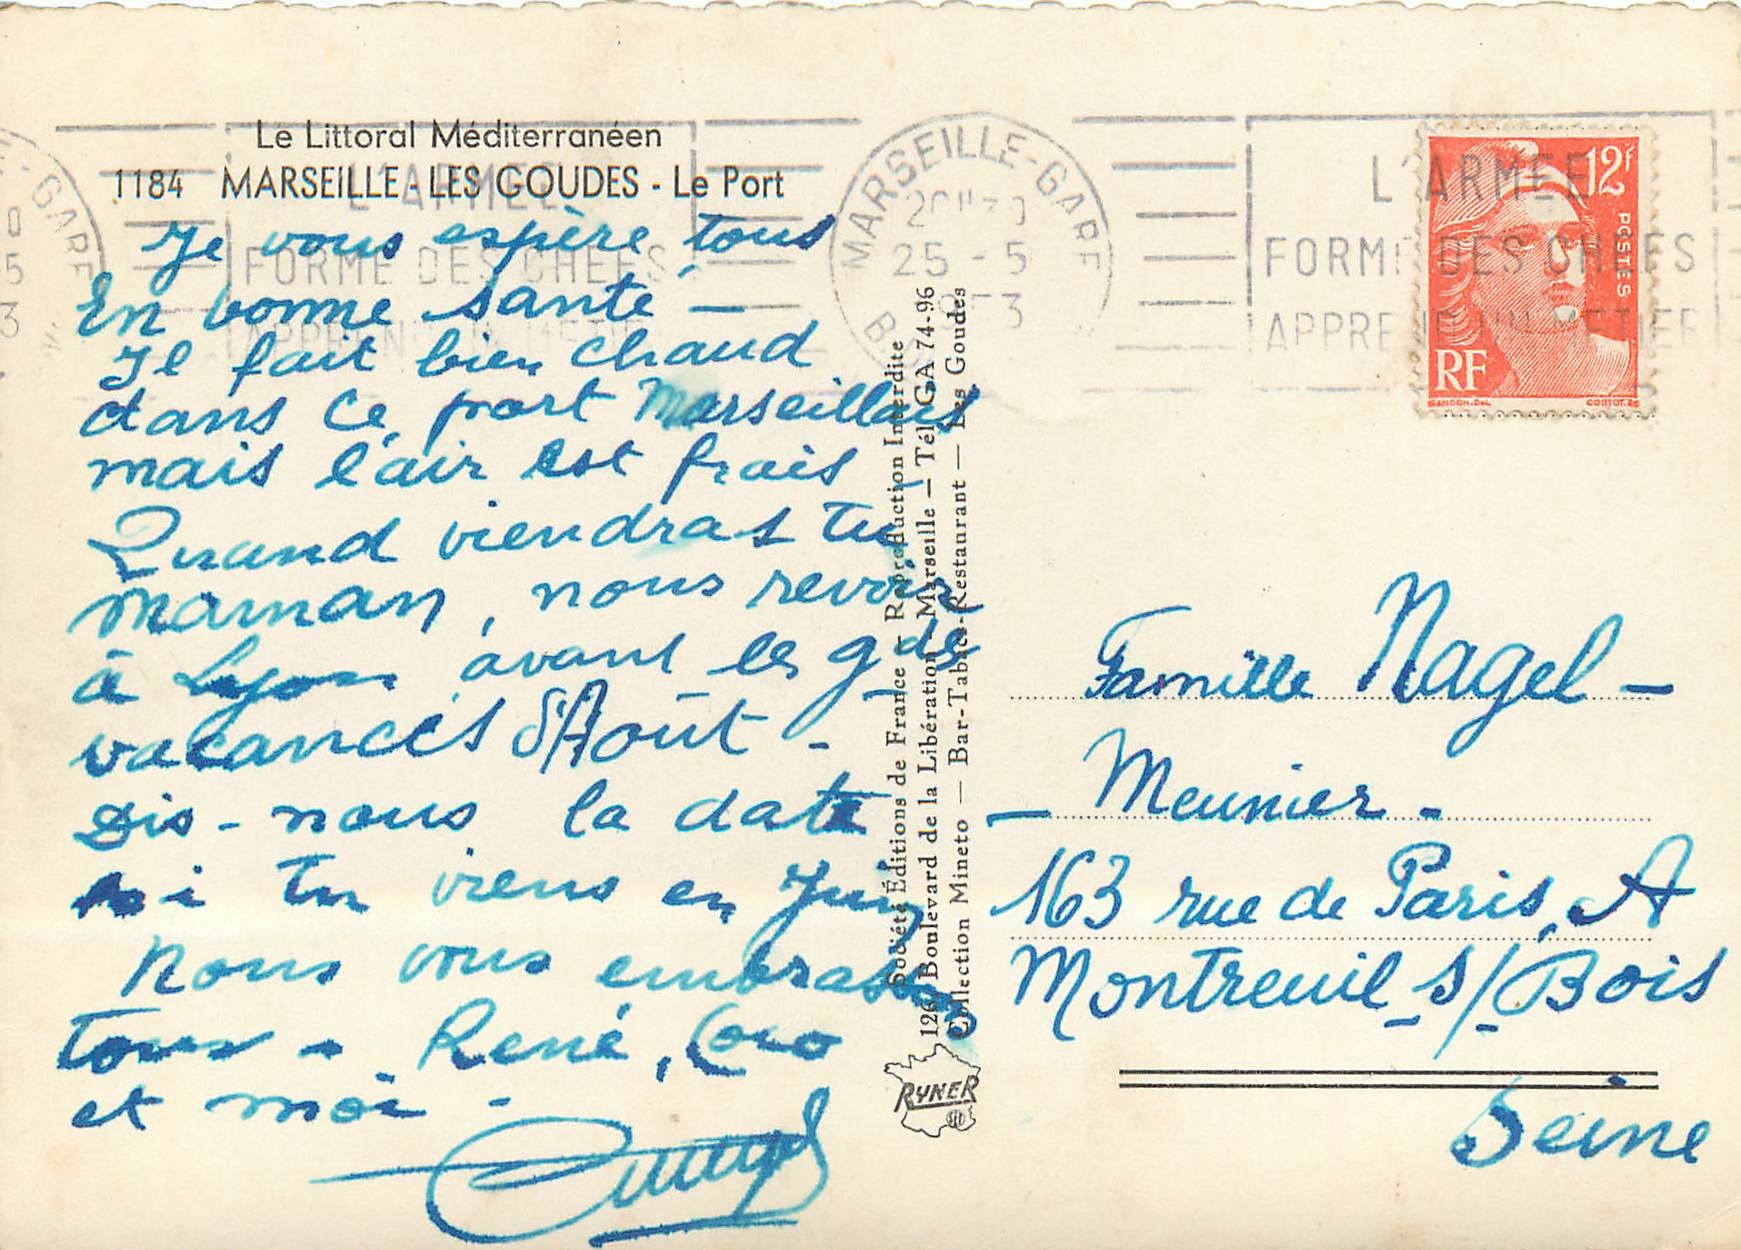 Le Littoral Méditerranéen
1184 MARSEILLE - LES GOUDES - Le Port
Je vous espère tous
En bonne santé -
Il fait bien chaud
dans ce port Marseillais
mais l'air est frais
Quand viendras tu
Maman, nous revoir
à Lyon avant les gdes
vacances d'Août -
Dis-nous la date
si tu viens en Juin
Nous vous embrassons
tous - René, Coco
et moi -
Société Éditions de France - Reproduction Interdite
126 Boulevard de la Libération - Marseille — Tél. GA 74-96
Collection Mineto — Bar-Tabacs-Restaurant — Les Goudes
RYNER
MARSEILLE-GARE
25 - 5
1953
L'ARMEE
FORME DES CHEFS
APPREND UN METIER
L'ARMEE
FORME DES CHEFS
APPREND UN METIER
12f
POSTES
RF
GANDON.DEL.
CORTOT.SC
Famille Nagel -
- Meunier -
163 rue de Paris, A
Montreuil s/ Bois
Seine